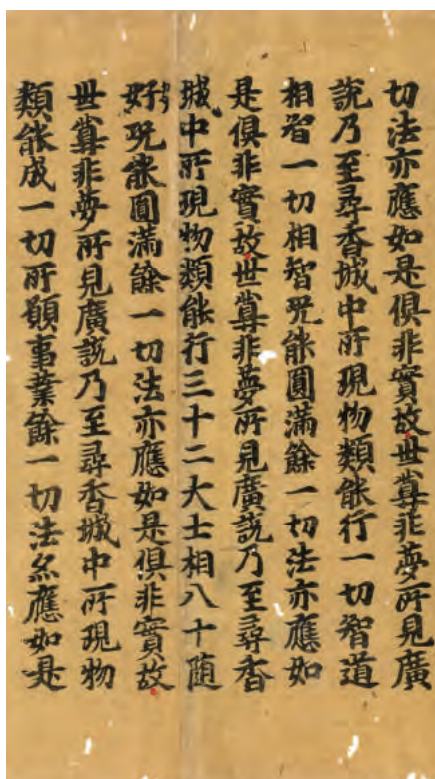 切法亦應如是俱非實故世尊非夢所見廣
説乃至尋香城中所現物類能行一切智道
相智一切相智況能圓滿餘一切法亦應如
是俱非實故世尊非夢所見廣説乃至尋香
城中所現物類能行三十二大士相八十随
好況能圓滿餘一切法亦應如是俱非實故
世尊非夢所見廣説乃至尋香城中所現物
類能成一切所願事業餘一切法亦應如是